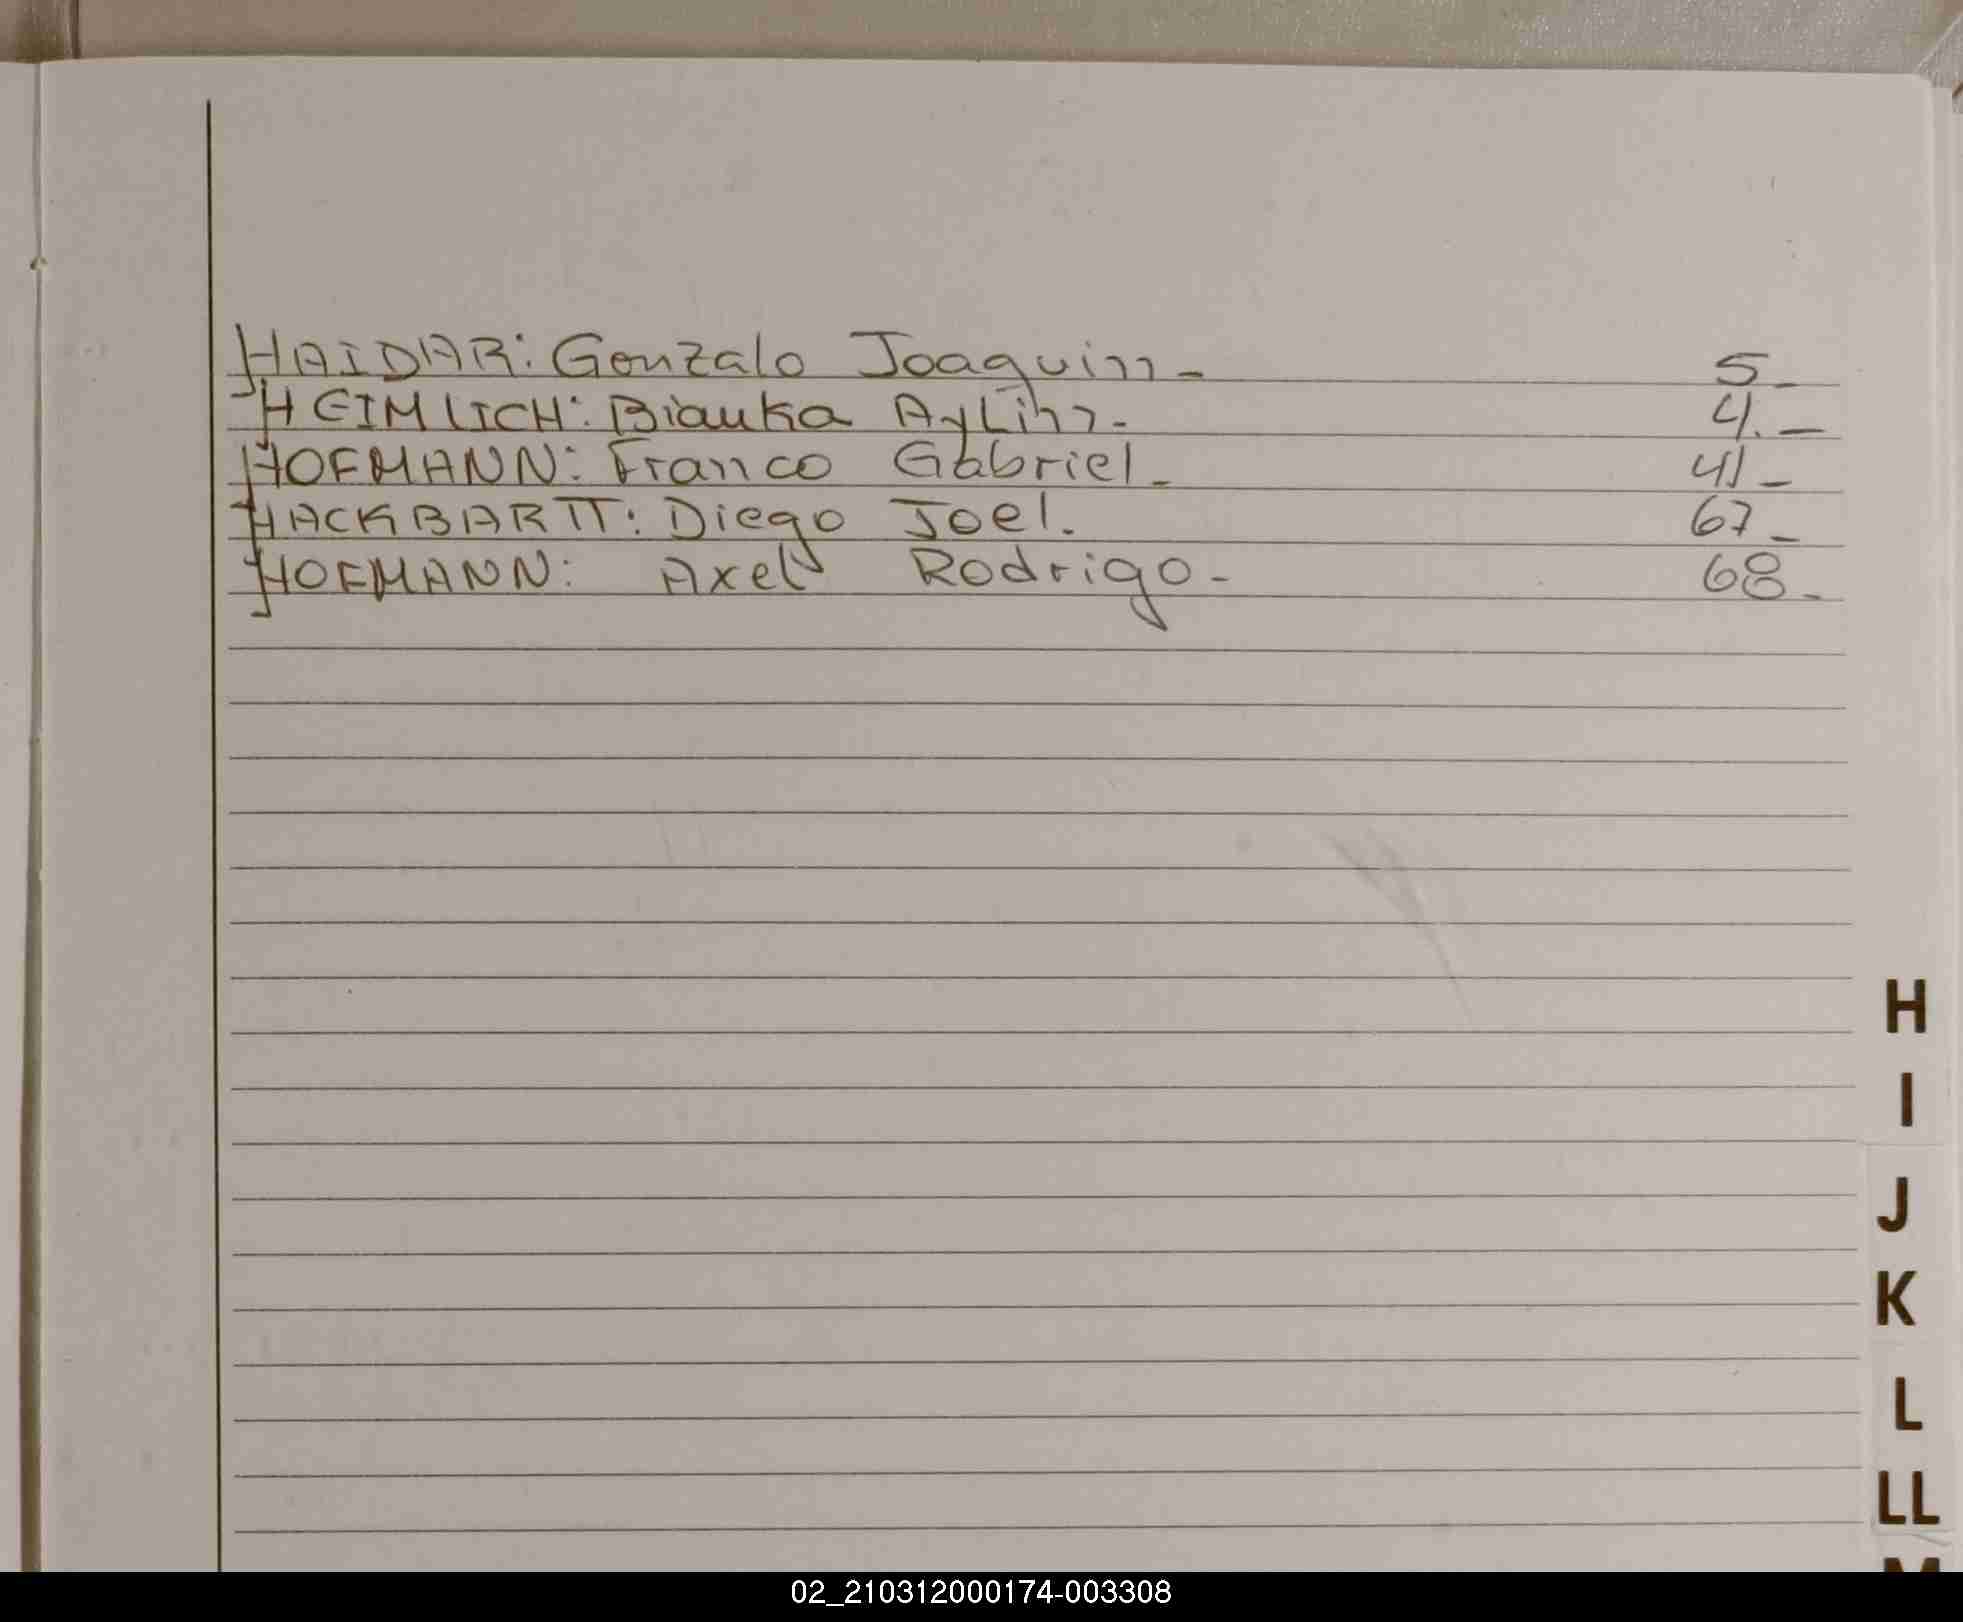 HAIDAR: Gonzalo Joaquin - 5 -
HEIMLICH: Bianka Aylin - 4. -
HOFMANN: Franco Gabriel - 41 -
HACKBARTT: Diego Joel. 67 -
HOFMANN: Axel Rodrigo - 68 -
H
I
J
K
L
LL
M
02_210312000174-003308